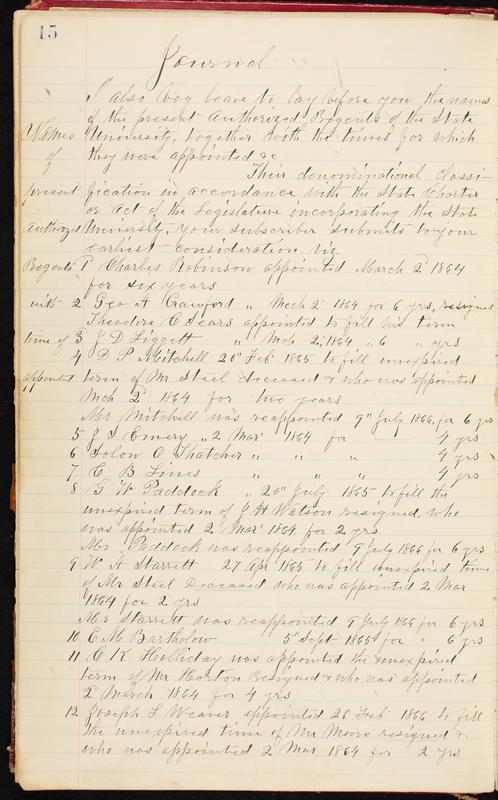 15
Journal
I also beg leave to lay before you the names
of the present authorized Regents of the State
Names University, together with the times for which
of they were appointed &c
Their denominational classi-
present fication in accordance with the State Charter
or act of the Legislature incorporating the State
authorized University, your subscriber submits to your
earliest consideration viz.
Regents 1 Charles Robinson appointed March 2d 1864
for six years
with 2 Geo A Crawford " Mch 2d 1864 for 6 yrs, resigned
Theodore C Sears appointed to fill his term
time of 3 J D Liggett " Mch 2d 1864 " 6 " yrs
4 D P Mitchell 20" Feb 1865 to fill unexpired
appointed term of Mr Steel deceased & who was appointed
Mch 2d 1864 for two years
Mr Mitchell was reappointed 9" July 1866, for 6 yrs
5 J S Emery " 2 Mar 1864 for 4 yrs
6 Solon O Thatcher " " " 4 yrs
7 C B Lines " " " 4 yrs
8 G W Paddock " 20" July 1865 to fill the
unexpired term of J H Watson resigned, who
was appointed 2 Mar 1864, for 2 yrs
Mr. Paddock was reappointed 9 July 1866 for 6 yrs
9 W A Starrett 27 Apr 1865 to fill unexpired time
of Mr Steel Deceased who was appointed 2 Mar
1864 for 2 yrs
Mr Starrett was reappointed 9 July 1866 for 6 yrs
10 E M Bartholow 5 Sept 1865 for " 6 yrs
11 C K Holliday was appointed the unexpired
term of Mr Horton resigned & who was appointed
2 March 1864 for 4 yrs
12 Joseph L Weaver appointed 26 Feb 1866 to fill
the unexpired time of Mr Moore resigned &
who was appointed 2 Mar 1864 for 2 yrs